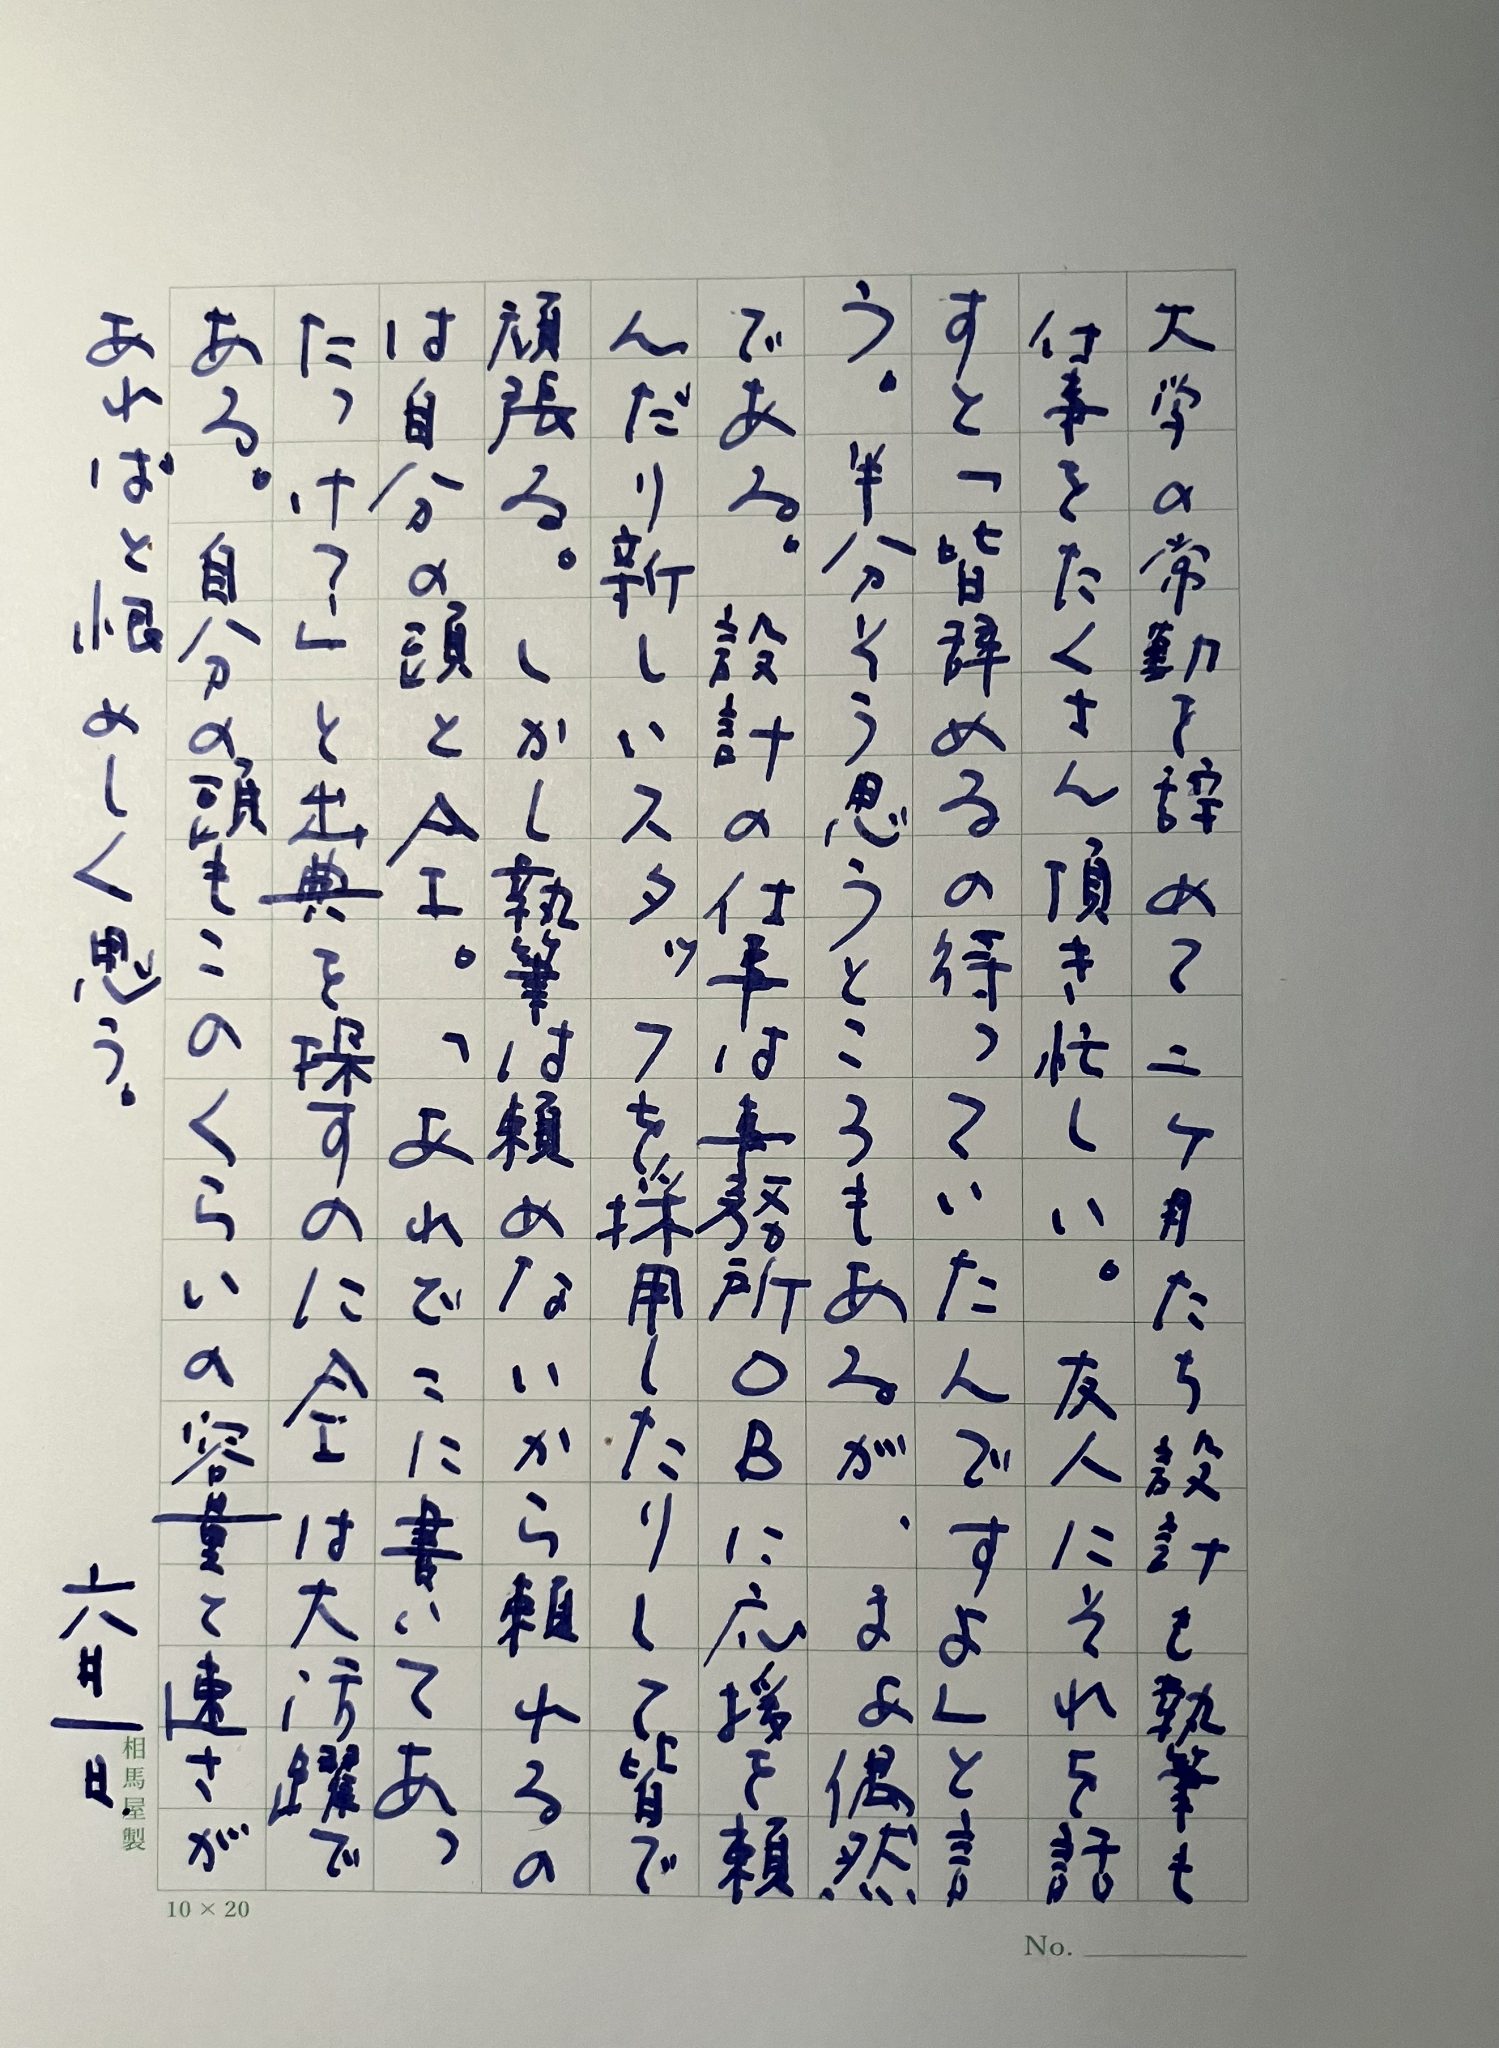 大学の常勤を辞めて二ヶ月たち設計も執筆も
仕事をたくさん頂き忙しい。友人にそれを話
すと「皆辞めるの待っていたんですよ」と言
う。半分そう思うところもあるが、まあ偶然
である。設計の仕事は事務所OBに応援を頼
んだり新しいスタッフを採用したりして皆で
頑張る。しかし執筆は頼めないから頼れるの
は自分の頭とAI。「あれどこに書いてあっ
たっけ?」と出典を探すのにAIは大活躍で
ある。自分の頭もこのくらいの容量と速さが
あればと恨めしく思う。
六月一日
相馬屋製
10×20
No.